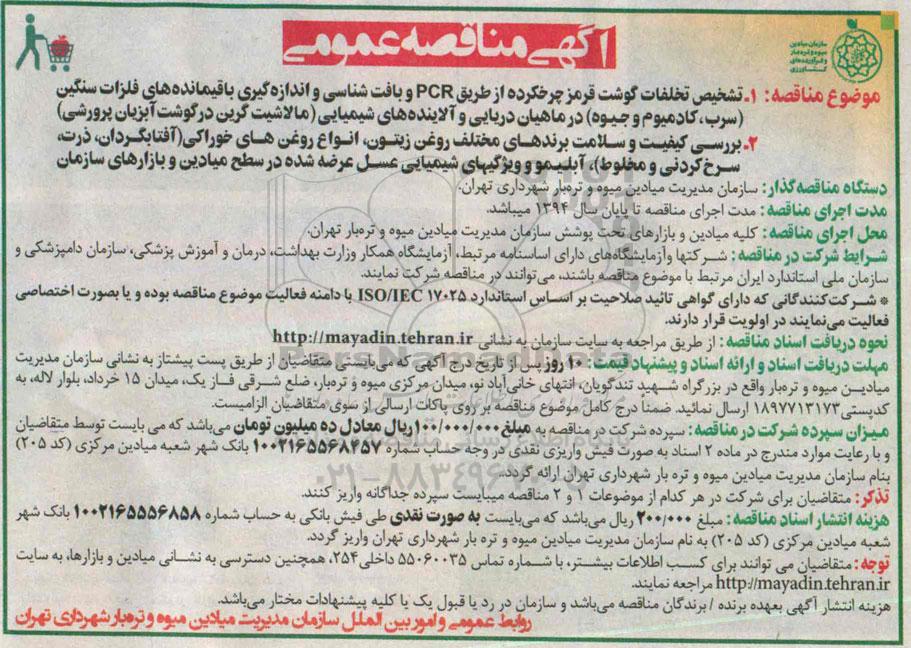 آگهی مناقصه عمومی
سازمان میادین
میوه و تره‌بار
و فرآورده‌های
کشاورزی
موضوع مناقصه: ۱ـ تشخیص تخلفات گوشت قرمز چرخکرده از طریق PCR و بافت شناسی و اندازه‌گیری باقیمانده‌های فلزات سنگین
(سرب، کادمیوم و جیوه) در ماهیان دریایی و آلاینده‌های شیمیایی (مالاشیت گرین در گوشت آبزیان پرورشی)
۲ـ بررسی کیفیت و سلامت برندهای مختلف روغن زیتون، انواع روغن های خوراکی(آفتابگردان، ذرت،
سرخ‌کردنی و مخلوط)، آبلیمو و ویژگیهای شیمیایی عسل عرضه شده در سطح میادین و بازارهای سازمان
دستگاه مناقصه‌گذار: سازمان مدیریت میادین میوه و تره‌بار شهرداری تهران.
مدت اجرای مناقصه: مدت اجرای مناقصه تا پایان سال ۱۳۹۴ میباشد.
محل اجرای مناقصه: کلیه میادین و بازارهای تحت پوشش سازمان مدیریت میادین میوه و تره‌بار تهران.
شرایط شرکت در مناقصه: شرکتها و آزمایشگاه‌های دارای اساسنامه مرتبط، آزمایشگاه همکار وزارت بهداشت، درمان و آموزش پزشکی، سازمان دامپزشکی و
سازمان ملی استاندارد ایران مرتبط با موضوع مناقصه باشند، می‌توانند در مناقصه شرکت نمایند.
* شرکت‌کنندگانی که دارای گواهی تائید صلاحیت بر اساس استاندارد ISO/IEC ۱۷۰۲۵ با دامنه فعالیت موضوع مناقصه بوده و یا بصورت اختصاصی
فعالیت می‌نمایند در اولویت قرار دارند.
نحوه دریافت اسناد مناقصه: از طریق مراجعه به سایت سازمان به نشانی http://mayadin.tehran.ir
مهلت دریافت اسناد و ارائه اسناد و پیشنهاد قیمت: ۱۰ روز پس از تاریخ درج آگهی که می‌بایستی متقاضیان از طریق پست پیشتاز به نشانی سازمان مدیریت
میادین میوه و تره‌بار واقع در بزرگراه شهید تندگویان، انتهای خانی‌آباد نو، میدان مرکزی میوه و تره‌بار، ضلع شرقی فاز یک، میدان ۱۵ خرداد، بلوار لاله، به
کدپستی ۱۸۹۷۷۱۳۱۷۳ ارسال نمائید. ضمناً درج کامل موضوع مناقصه بر روی پاکات ارسالی از سوی متقاضیان الزامیست.
میزان سپرده شرکت در مناقصه: سپرده شرکت در مناقصه به مبلغ ۱۰۰/۰۰۰/۰۰۰ ریال معادل ده میلیون تومان می‌باشد که می بایست توسط متقاضیان
و با رعایت موارد مندرج در ماده ۲ اسناد به صورت فیش واریزی نقدی در وجه حساب شماره ۱۰۰۲۱۶۵۵۶۸۴۵۷ بانک شهر شعبه میادین مرکزی (کد ۲۰۵)
بنام سازمان مدیریت میادین میوه و تره بار شهرداری تهران ارائه گردد.
تذکر: متقاضیان برای شرکت در هر کدام از موضوعات ۱ و ۲ مناقصه میبایست سپرده جداگانه واریز کنند.
هزینه انتشار اسناد مناقصه: مبلغ ۲۰۰/۰۰۰ ریال می‌باشد که می‌بایست به صورت نقدی طی فیش بانکی به حساب شماره ۱۰۰۲۱۶۵۵۵۶۸۵۸ بانک شهر
شعبه میادین مرکزی (کد ۲۰۵) به نام سازمان مدیریت میادین میوه و تره بار شهرداری تهران واریز گردد.
توجه: متقاضیان می توانند برای کسب اطلاعات بیشتر، با شماره تماس ۵۵۰۶۰۰۳۵ داخلی ۲۵۴، همچنین دسترسی به نشانی میادین و بازارها، به سایت
http://mayadin.tehran.ir مراجعه نمایند.
هزینه انتشار آگهی بعهده برنده / برندگان مناقصه می‌باشد و سازمان در رد یا قبول یک یا کلیه پیشنهادات مختار می‌باشد.
روابط عمومی و امور بین الملل سازمان مدیریت میادین میوه و تره‌بار شهرداری تهران
ParsNamadData
۰۲۱-۸۸۳۴۹۶۷۰